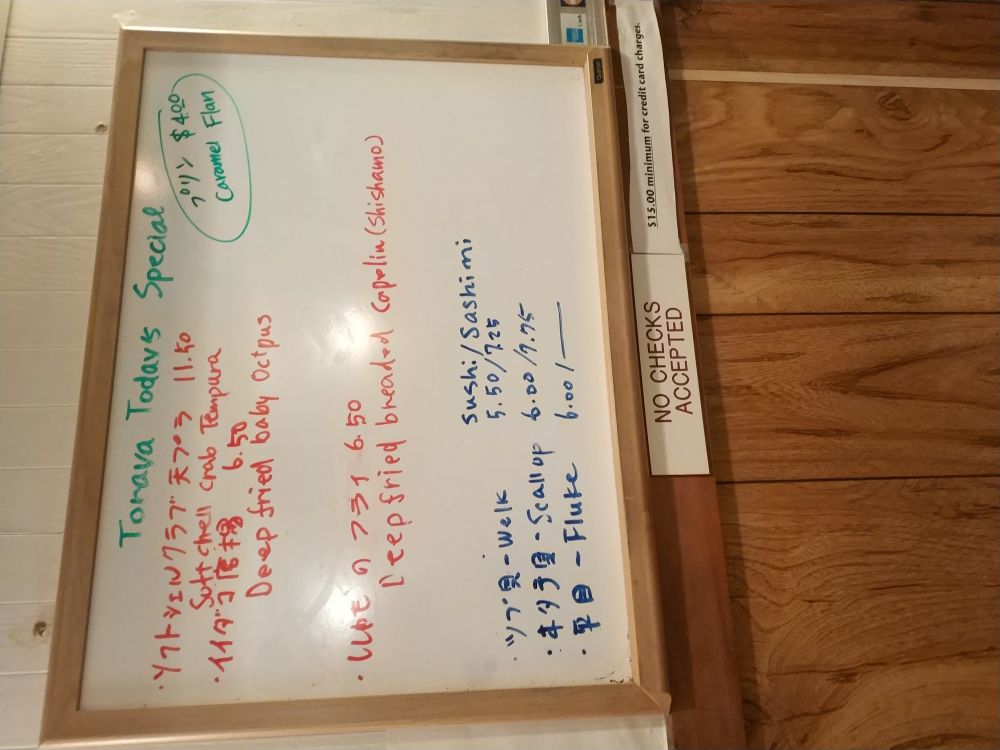 Tomaya Todays Special
プリン $4.00
Caramel Flan
・ソフトシェルクラブ天プラ 11.50
Soft chell crab Tempura
・イイダコ唐揚 6.50
Deep fried baby Octpus
・ししゃものフライ 6.50
Deep fried breaded Capelin (Shishamo)
Sushi/Sashimi
・ツブ貝-Welk 5.50/7.25
・ホタテ貝-Scallop 6.00/7.75
・平目-Fluke 6.00/
Quartet
$15.00 minimum for credit card charges.
NO CHECKS
ACCEPTED